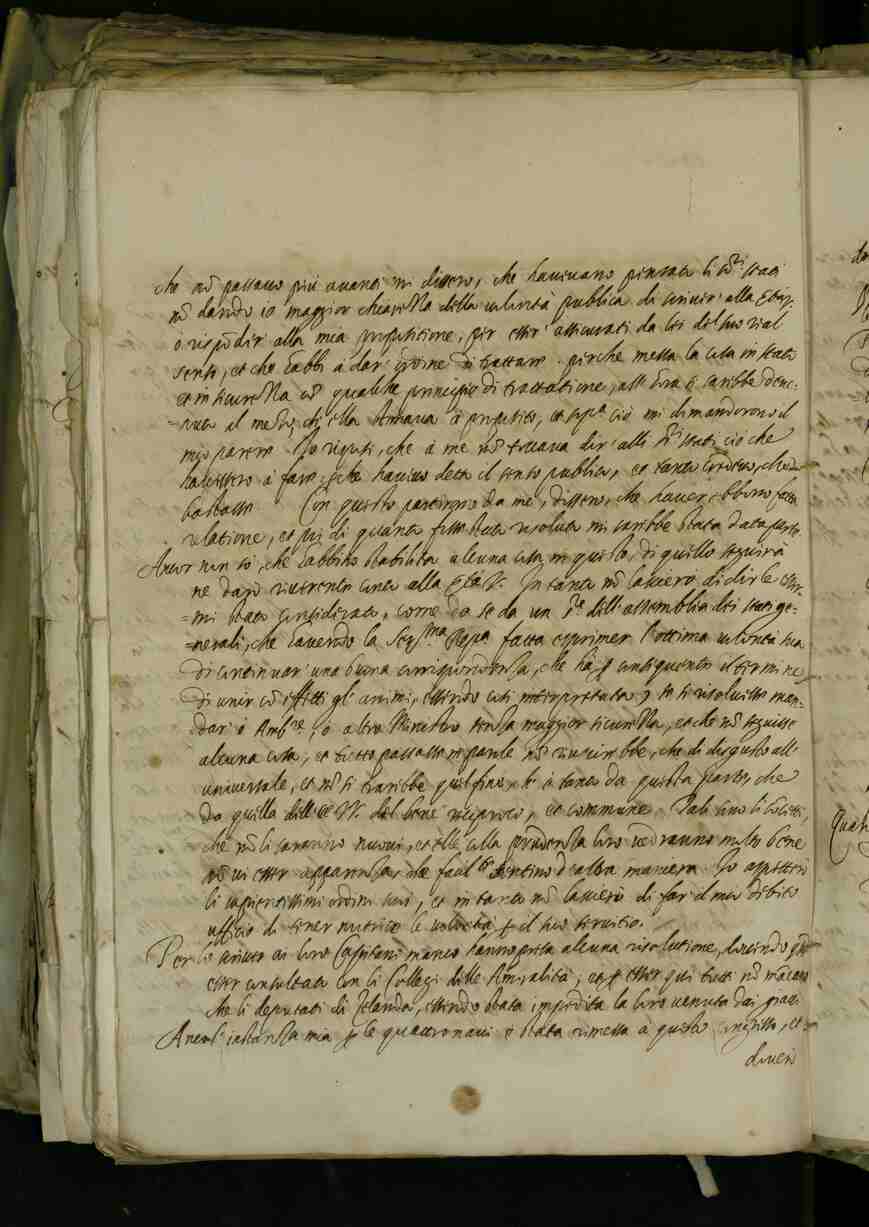 che non passavo più avanti mi dissero, che havevano pensato li Sri stati
non dando io maggior chiarezza della volontà pubblica di scriver' alla
ò rispõder alla mia propositione, per esser' assicurati da lei del suo real
senso, et che habbi à dar' ordine di trattare. perche messa la cosa in stato
et in sicurezza cõ qualche principio di trattatione, all'hora si sarebbe
il medo, che ella stimava à proposito, et sopra ciò mi dimandorono il
mio parere. Io risposi, che à me nõ toccava dir' alli Sri stati ciò che
havessero à fare; che havevo detto il senso publico, et tanto credevo, che
bastasse. Con questo partirono da me, dissero, che haverebbono fatta
relatione, et poi di quanto fusse stato risoluto mi sarebbe stata data parte.
Ancor non sò, che habbino stabilita alcuna cosa in questo, di quello seguirà
ne darò riverente conto alla Ser.tà V. In tanto nõ lascierò di dirle esser-
=mi stato considerato, come da se da un Sre dell'assemblea dei stati ge-
=nerali, che havendo la Ser.ma Repca fatta esprimer l'ottima volontà sua
di continuar' una buona corrispondenza, che hà per consequente il termine
di unir cõ effetti gl'animi, essendo così interpretata, se si risolvesse man-
dar' ò Ambre, ò altro Ministro senza maggior sicurezza, et che nõ seguisse
alcuna cosa, et tutto passasse in parole nõ riuscirebbe, che di disgusto all'
universale, et nõ si trarebbe quel fine, che è tanto da questa parte, che
da quella dell'EE VV. del bene reciproco, et commune. Tali sono li concetti,
che nõ li saranno nuovi, et elle colla prudenza loro vedranno molto bene
nõ vi esser apparenza, che facilmte sentino d'altra maniera. Io aspetterò
li sapientissimi ordini suoi, et in tanto nõ lascierò di far il mio debito
ufficio di tener nutrite le volontà per il suo servitio.
Per lo scritto ai loro Capitani manco hanno presa alcuna risolutione, dovendo
esser consultato con li Collegi delle Amiralità, et per esser qui tutti nõ mãcano
che li deputati di Zelanda, essendo stata impedita la loro venuta dai giacci
Anco l'instanza mia per le quattro navi è stata rimessa à questo consiglio, et
dovendo